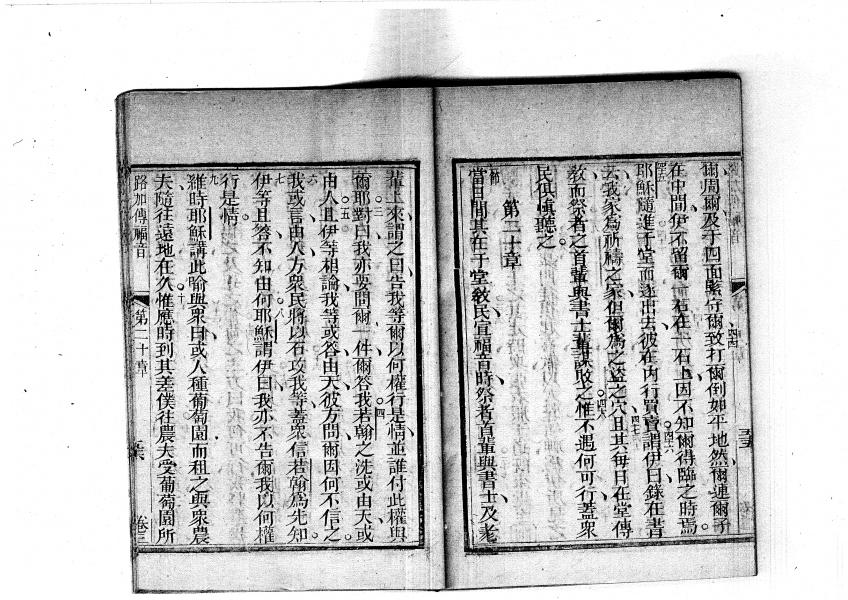 爾周爾及于四面緊守爾致打爾倒如平地然爾連爾子
在中間伊不留爾一石在于石上因不知爾得臨之時焉。
耶穌隨進于堂而逐出去彼在內行買賣謂伊曰錄在書
云我家為祈禱之家但爾為之盜之穴且其每日在堂傳
教而祭者之首輩與書士輩謀殺之惟不遇何可行蓋眾
民俱慎聽之。
第二十章
節
當日間其在于堂教民宣福音時祭者首輩與書士及老
輩上來謂之曰告我等爾以何權行是情並誰付此權與
爾耶對曰我亦要問爾一件爾答我若翰之洗或由天或
由人且伊等相論我等或答由天彼方問爾因何不信之。
我或言由人方眾民將以石攻我等蓋眾信若翰為先知
伊等且答不知由何耶穌謂伊曰我亦不告爾我以何權
行是情
維時耶穌講此喻與眾曰或人種葡萄園而租之與眾農
夫隨往遠地在久惟應時到其差僕往農夫受葡萄園所
路加傳福音
第二十章
卷三